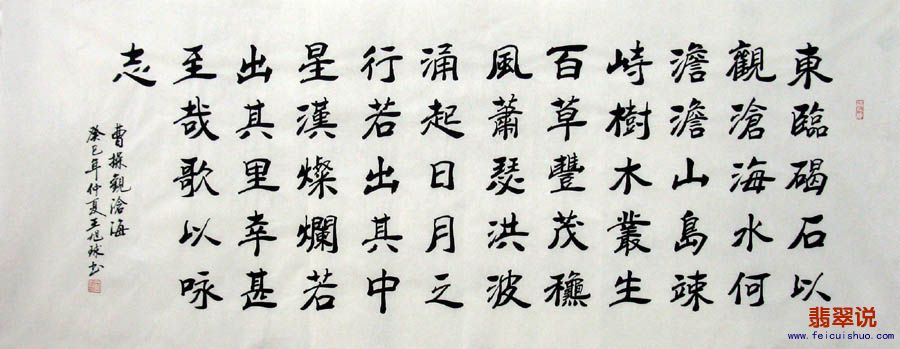 東臨碣石以
觀滄海水何
澹澹山島竦
峙樹木叢生
百草豐茂穐
風蕭瑟洪波
涌起日月之
行若出其中
星漢燦爛若
出其里幸甚
至哉歌以咏
志
曹操觀滄海
癸巳年仲夏王球书
翡翠说
www.feicuishuo.com